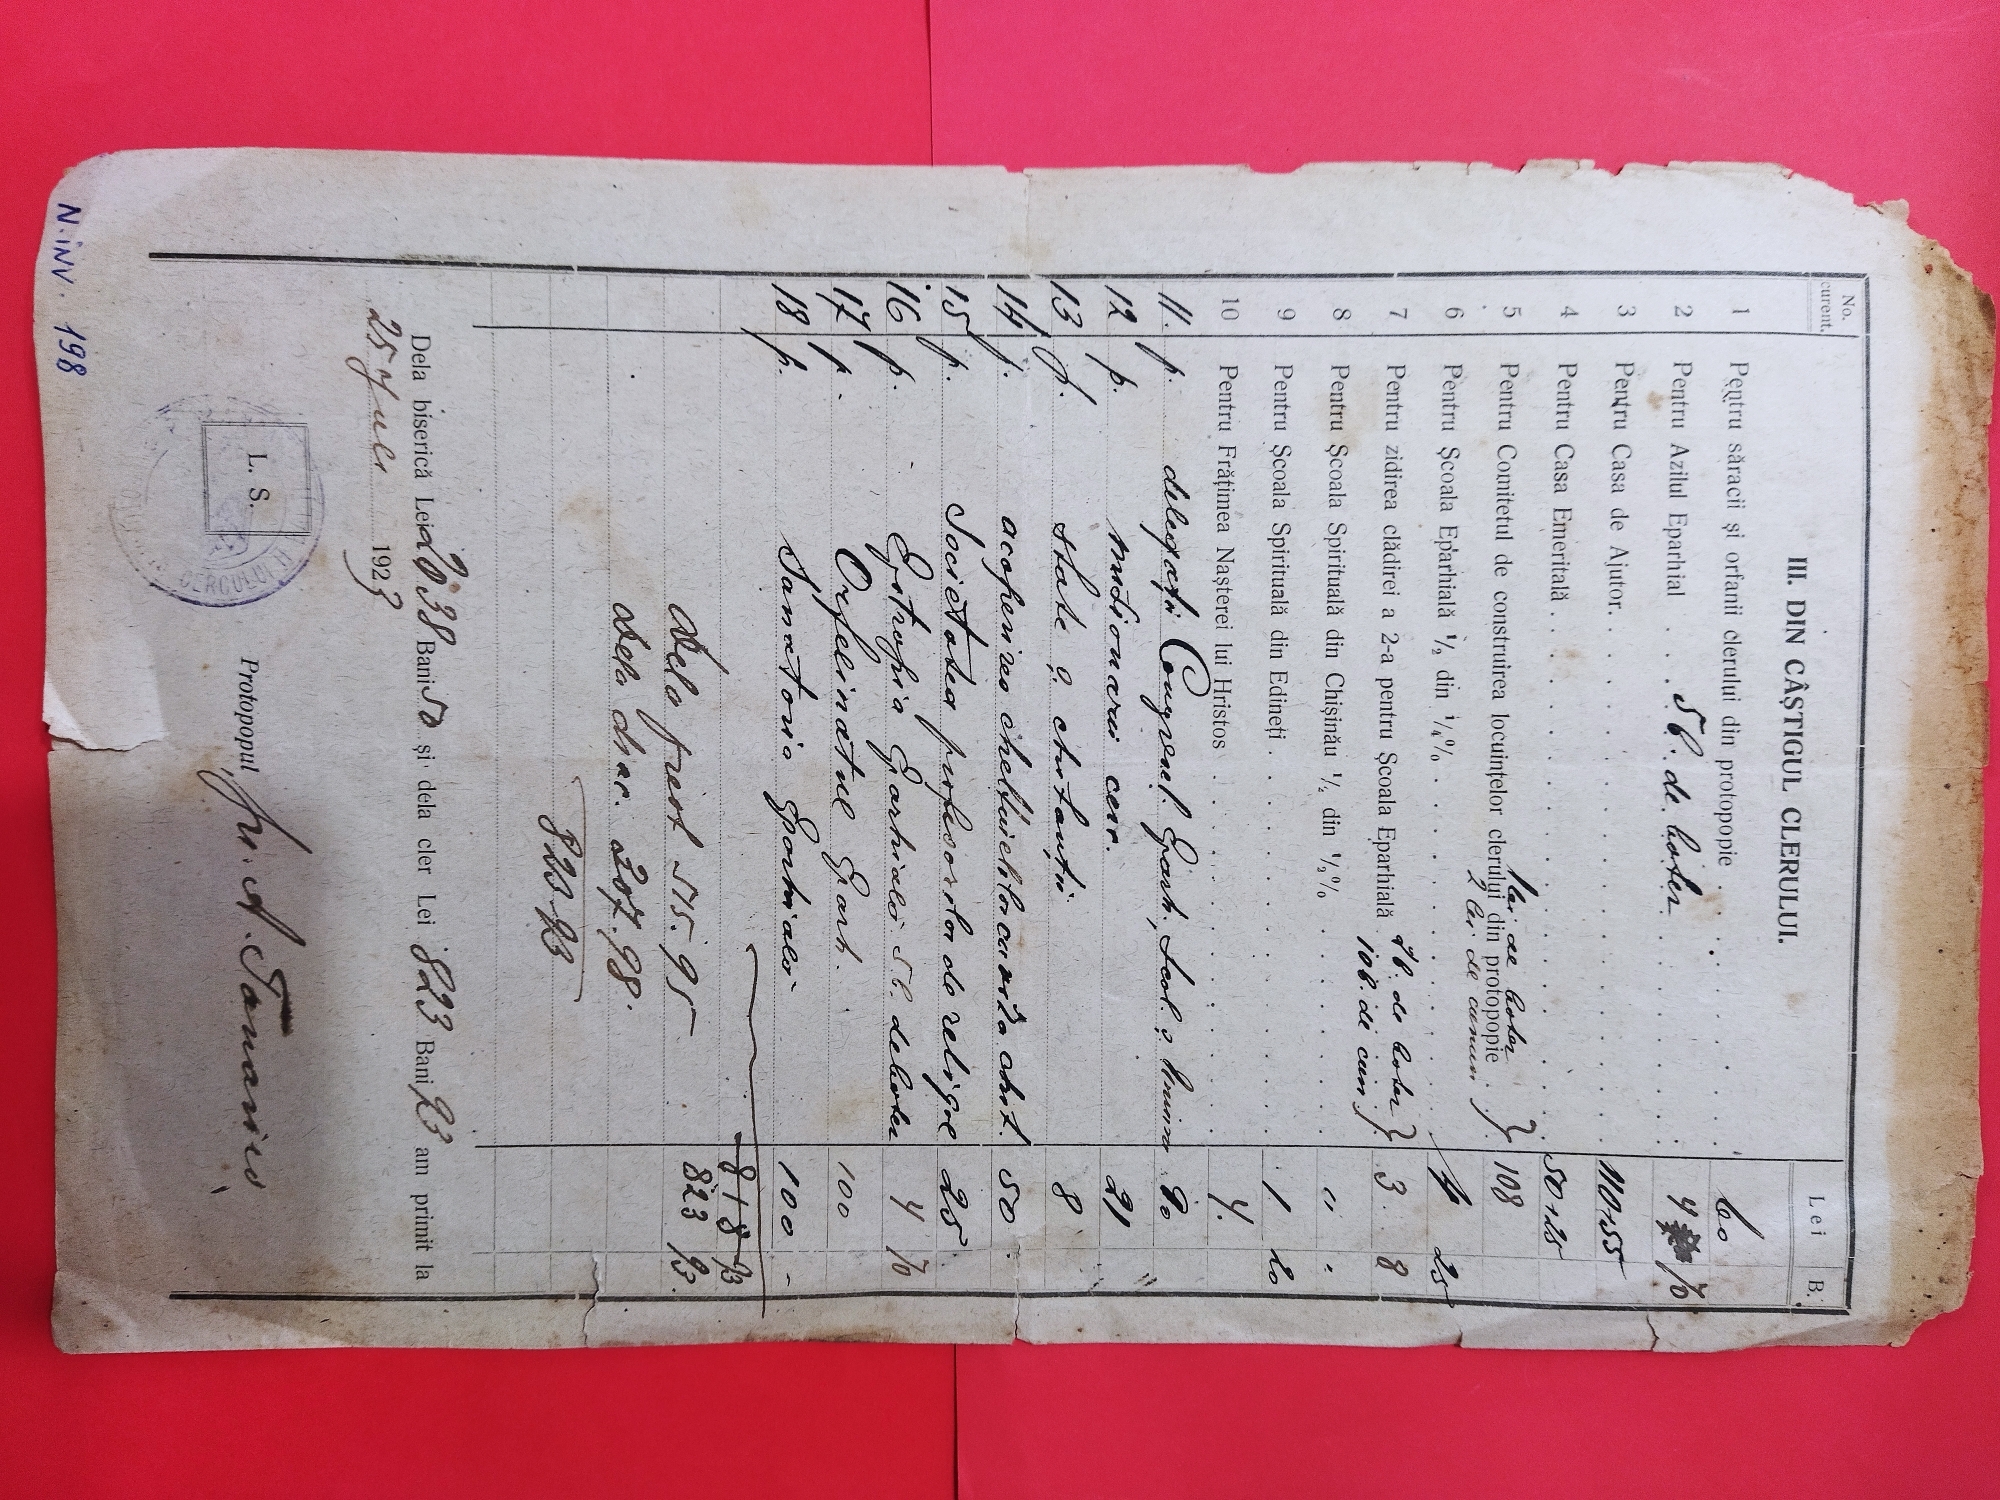 III. DIN CÂȘTIGUL CLERULUI.
No. curent. Lei B.
1 Pentru săracii și orfanii clerului din protopopie 60
2 Pentru Azilul Eparhial 5 b. de hoter 4 70
3 Pentru Casa de Ajutor. 410 55
4 Pentru Casa Emeritală 50 25
1 lei de hoter
5 Pentru Comitetul de construirea locuințelor clerului din protopopie 108
2 lei de cumun
6 Pentru Școala Eparhială ½ din ¼% 4 25
7 Pentru zidirea clădirei a 2-a pentru Școala Eparhială 7 b. de hoter 3 8
10 b. de cum
8 Pentru Școala Spirituală din Chișinău ½ din ½% " "
9 Pentru Școala Spirituală din Edineți 1 20
10 Pentru Frăținea Nașterei lui Hristos 4.
11. p. delegații Congresul. Eparh.
12 p. misionarii cerc. 21
13 p. state și chitanții 8
14 p. acoperirea cheltuielilor 50
15 p. Societatea profesorilor de religie 25
16 p. Epitropia Eparhială 5 b. de hoter 4 70
17 p. Orfelinatul Eparh. 100
18 p. Sanatoria Eparhială 100 -
818 93
Dela preot 515.95 823 93
Dela diac. 307.98.
823-93
Dela biserică Lei 2038 Bani 50 și dela cler Lei 823 Bani 93 am primit la
25 Juli 1923
L. S.
CERCULUI
Protopopul
N. INV. 198